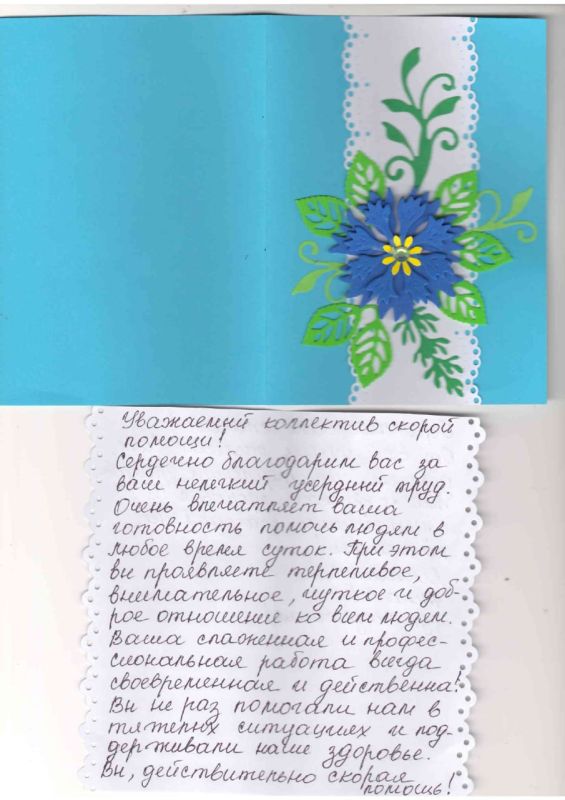 Уважаемый коллектив скорой
помощи!
Сердечно благодарим вас за
ваш нелёгкий усердный труд.
Очень впечатляет ваша
готовность помочь людям в
любое время суток. При этом
вы проявляете терпеливое,
внимательное, чуткое и доб-
рое отношение ко всем людям.
Ваша слаженная и профес-
сиональная работа всегда
своевременная и действенна!
Вы не раз помогали нам в
тяжелых ситуациях и под-
держивали наше здоровье.
Вы, действительно скорая
помощь!